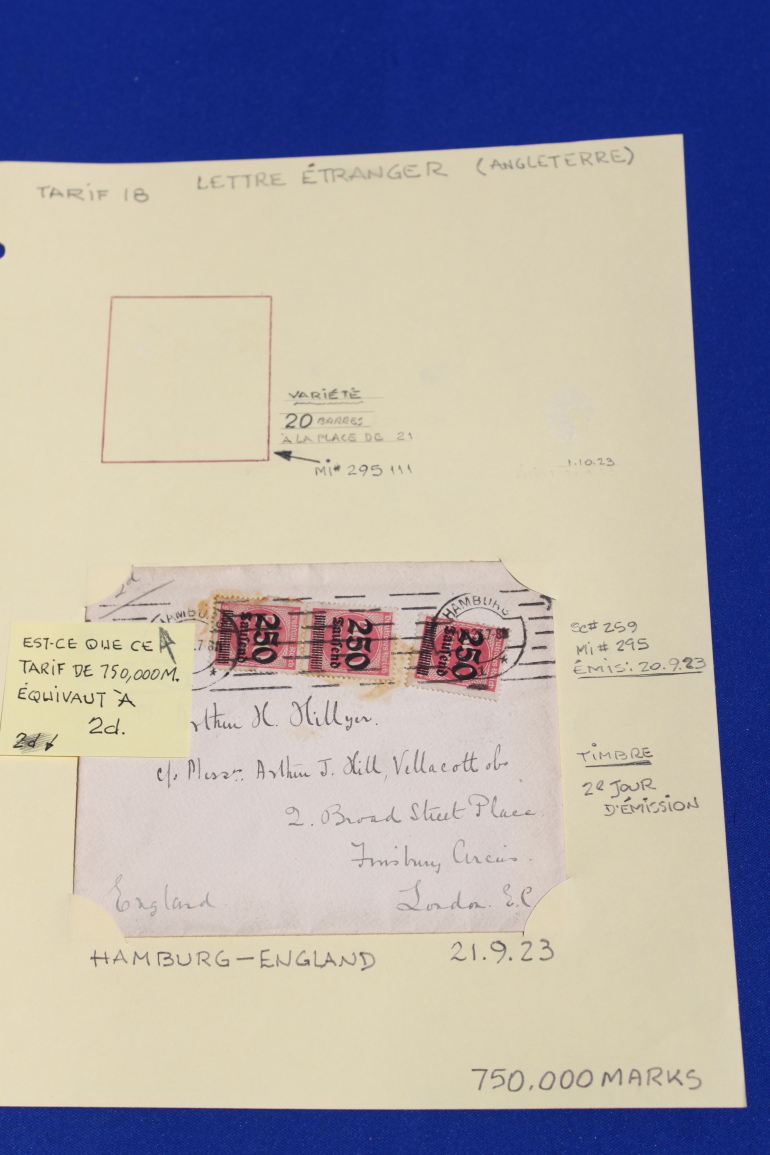 TARIF 18 LETTRE ÉTRANGER (ANGLETERRE)
VARIÉTÉ
20 BARRES
À LA PLACE DE 21
Mi# 295 III
1.10.23
2d
HAMBURG
250
Tausend
250
Tausend
250
Tausend
EST-CE QUE CE
TARIF DE 750,000M.
ÉQUIVAUT À
2d.
2d
Arthur H. Hillyer.
c/o Messrs. Arthur J. Hill, Vellacott
2. Broad Street Place
Finsbury Circus.
England London. E.C
Sc# 259
Mi # 295
ÉMIS: 20.9.23
TIMBRE
2e JOUR
D'ÉMISSION
HAMBURG—ENGLAND 21.9.23
750.000 MARKS